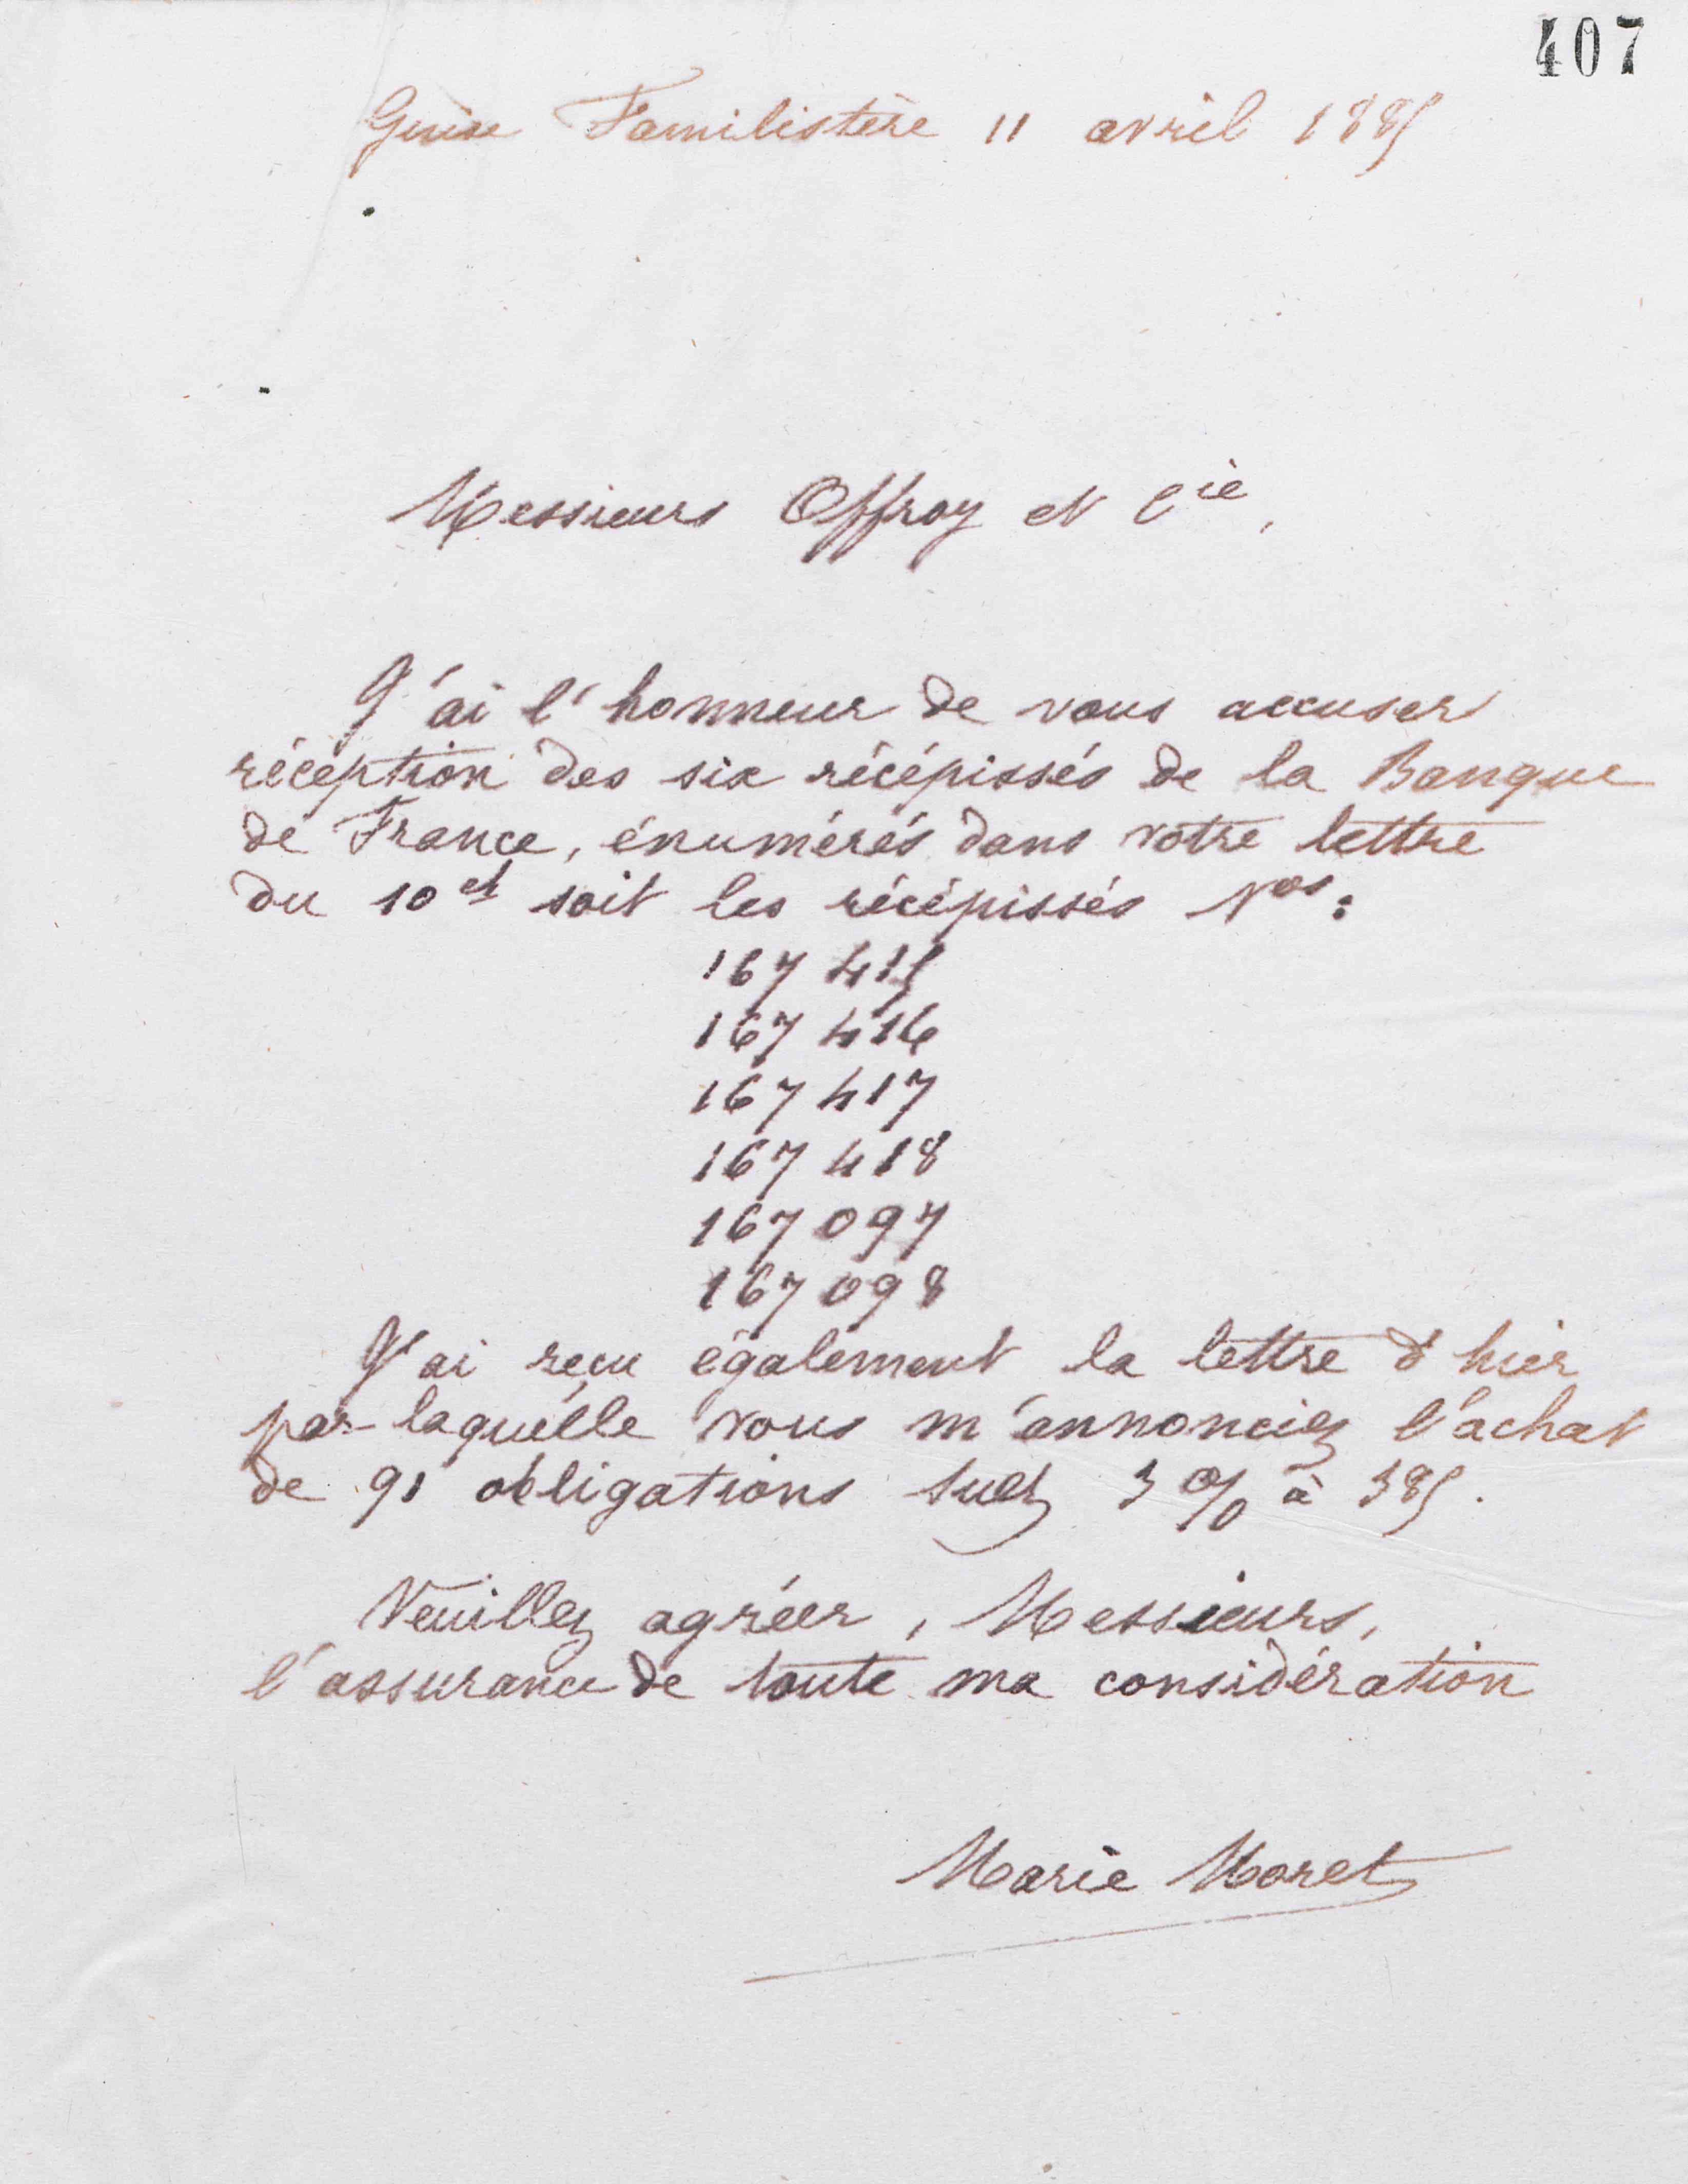 407
Guise Familistère 11 avril 1885
Messieurs Offroy et Cie,
J'ai l'honneur de vous accuser
réception des six récépissés de la Banque
de France, énumérés dans votre lettre
du 10 ct soit les récépissés Nos :
167 415
167 416
167 417
167 418
167 097
167 098
J'ai reçu également la lettre d'hier
par laquelle vous m'annonciez l'achat
de 91 obligations Suez 3 % à 385.
Veuillez agréer, Messieurs,
l'assurance de toute ma considération
Marie Moret